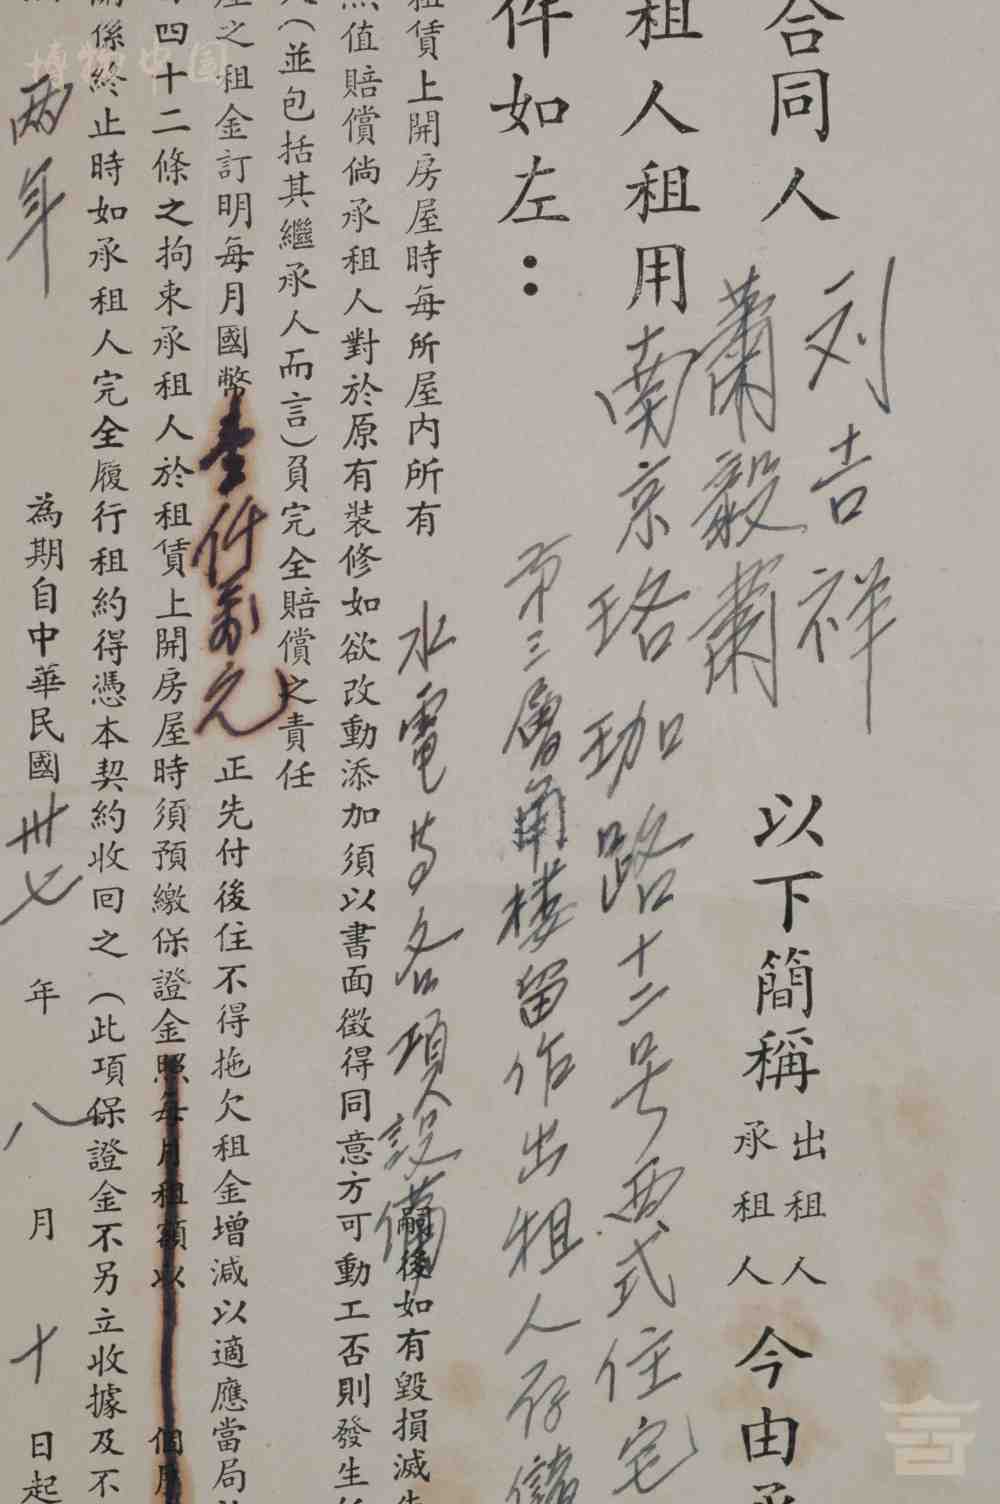 合同人
刘吉祥
蕭毅蕭
以下簡稱
出租人
承租人
今由承
租人租用南京珞珈路十二号西式住宅
第三層角楼留作出租人存儲
件如左：
租賃上開房屋時每所屋内所有水電等各項設備嗣後如有毀損滅失
照值賠償倘承租人對於原有裝修如欲改動添加須以書面徵得同意方可動工否則發生
人（並包括其繼承人而言）負完全賠償之責任
屋之租金訂明每月國幣壹仟萬元正先付後住不得拖欠租金增減以適應當局
四十二條之拘束承租人於租賃上開房屋時須預繳保證金照每月租額以 個月
關係終止時如承租人完全履行租約得憑本契約收回之（此項保證金不另立收據及不
兩年 為期自中華民國卅七年八月十日起
博物中国